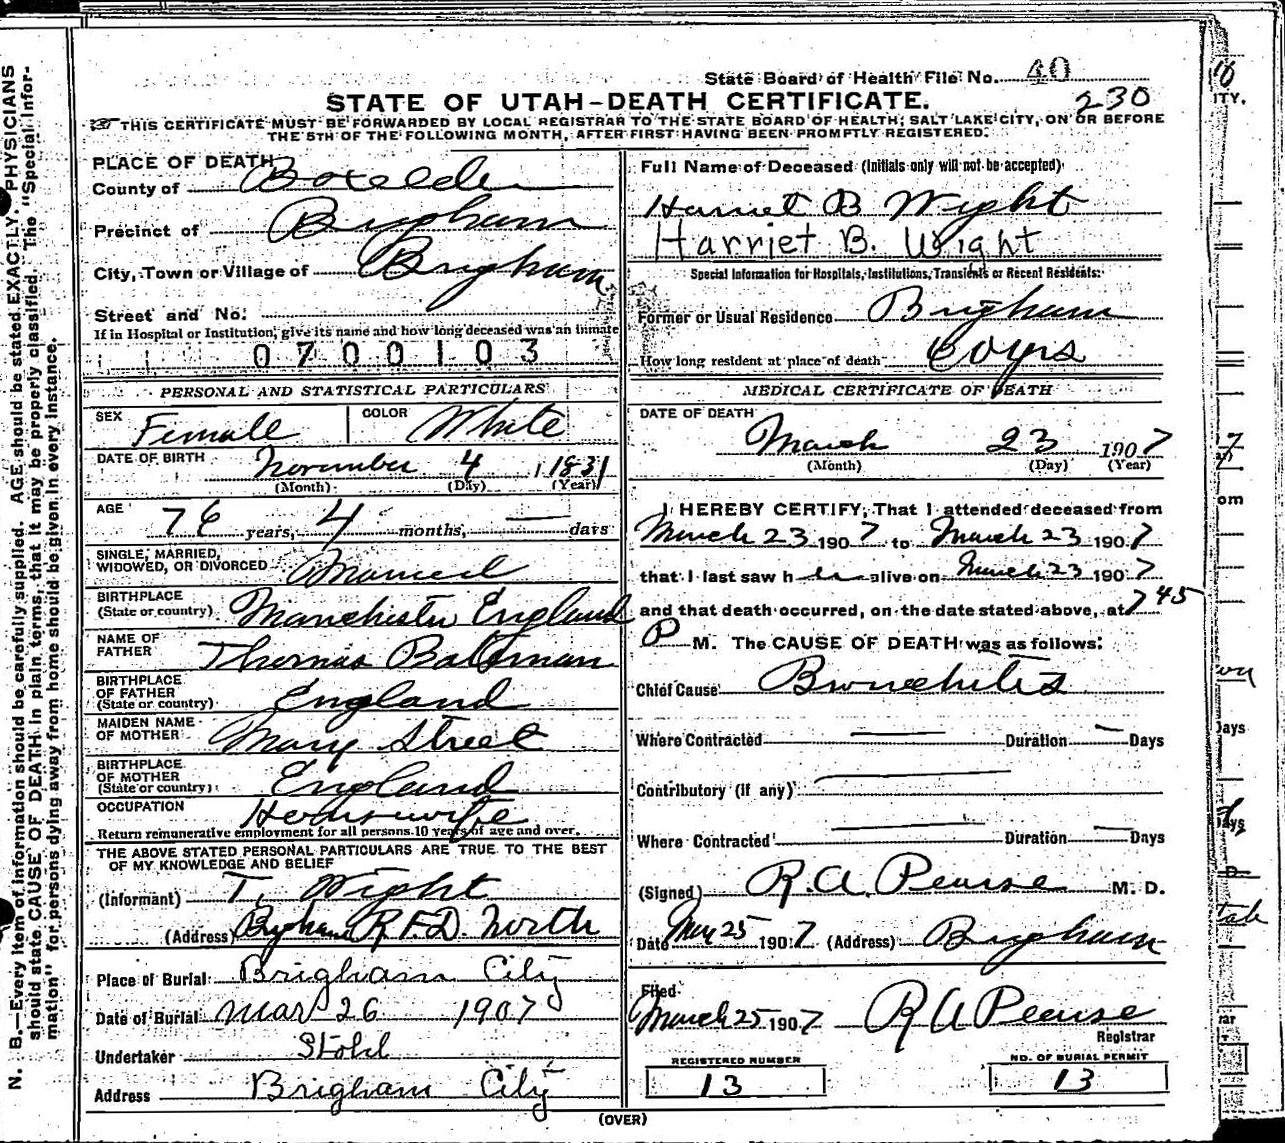 State Board of Health File No. 40
230
STATE OF UTAH-DEATH CERTIFICATE.
THIS CERTIFICATE MUST BE FORWARDED BY LOCAL REGISTRAR TO THE STATE BOARD OF HEALTH, SALT LAKE CITY, ON OR BEFORE
THE 5TH OF THE FOLLOWING MONTH, AFTER FIRST HAVING BEEN PROMPTLY REGISTERED.
PLACE OF DEATH
County of Boxelder
Precinct of Brigham
City, Town or Village of Brigham
Street and No.
If in Hospital or Institution, give its name and how long deceased was an inmate
0700103
PERSONAL AND STATISTICAL PARTICULARS
SEX Female COLOR White
DATE OF BIRTH November 4, 1831
(Month) (Day) (Year)
AGE 76 years, 4 months, — days
SINGLE, MARRIED,
WIDOWED, OR DIVORCED Married
BIRTHPLACE
(State or country) Manchester England
NAME OF
FATHER Thomas Bateman
BIRTHPLACE
OF FATHER
(State or country) England
MAIDEN NAME
OF MOTHER Mary Street
BIRTHPLACE
OF MOTHER
(State or country) England
OCCUPATION Housewife
Return remunerative employment for all persons 10 years of age and over.
THE ABOVE STATED PERSONAL PARTICULARS ARE TRUE TO THE BEST
OF MY KNOWLEDGE AND BELIEF
(Informant) T. Wight
(Address) Brigham R.F.D. North
Place of Burial Brigham City
Date of Burial Mar 26 1907
Undertaker Stohl
Address Brigham City
Full Name of Deceased (Initials only will not be accepted)
Harriet B Wight
Harriet B. Wright
Special Information for Hospitals, Institutions, Transients or Recent Residents:
Former or Usual Residence Brigham
How long resident at place of death 60 yrs
MEDICAL CERTIFICATE OF DEATH
DATE OF DEATH
March 23 1907
(Month) (Day) (Year)
I HEREBY CERTIFY, That I attended deceased from
March 23 1907 to March 23 1907
that I last saw her alive on March 23 1907
and that death occurred, on the date stated above, at 7 45
P M. The CAUSE OF DEATH was as follows:
Chief Cause Bronchitis
Where Contracted — Duration — Days
Contributory (if any)
Where Contracted — Duration — Days
(Signed) R.A. Pearse M. D.
Date Mar 25 1907 (Address) Brigham
Filed
March 25 1907 R A Pearse
Registrar
REGISTERED NUMBER
13
NO. OF BURIAL PERMIT
13
(OVER)
N. B.—Every item of information should be carefully supplied. AGE should be stated EXACTLY. PHYSICIANS
should state CAUSE OF DEATH in plain terms, that it may be properly classified. The "Special Infor-
mation" for persons dying away from home should be given in every instance.